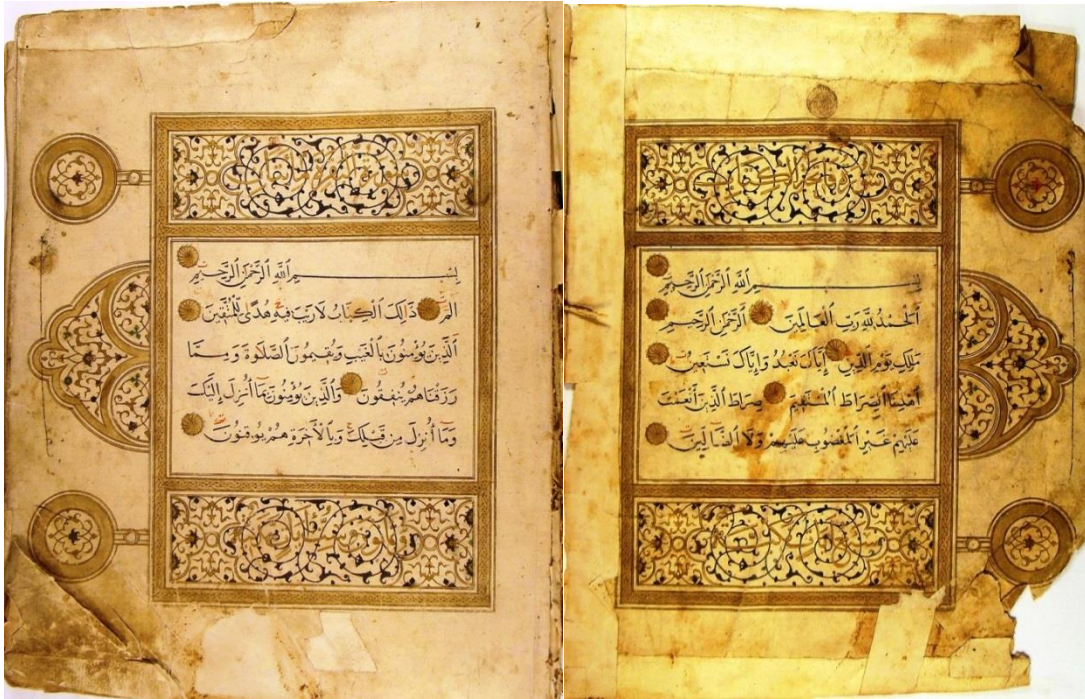 بسم الله الرحمن الرحيم
الحمد لله رب العالمين الرحمن الرحيم
ملك يوم الدين إياك نعبد وإياك نستعين
اهدنا الصراط المستقيم صراط الذين أنعمت
عليهم غير المغضوب عليهم ولا الضالين
بسم الله الرحمن الرحيم
الم ذالك الكتاب لا ريب فيه هدى للمتقين
الذين يؤمنون بالغيب ويقيمون الصلاوة ومما
رزقناهم ينفقون والذين يؤمنون بما أنزل إليك
وما أنزل من قبلك وبالآخرة هم يوقنون